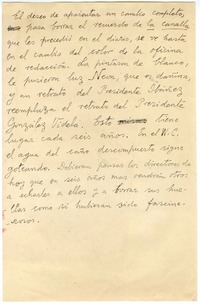 El deseo de aparentar un cambio completo,
para borrar el recuerdo de la canalla
que les precedió en el diario, se ve hasta
en el cambio del color de la oficina
de redacción. La pintaron de blanco,
le pusieron luz Neon, que es dañina,
y un retrato del Presidente Ibáñez
reemplaza el retrato del Presidente
González Videla. Esto tiene
lugar cada seis años. En el W.C.
el agua del caño descompuesto sigue
goteando. Debieran pensar los directores de
hoy que en seis años mas vendrán otros
a echarles a ellos y a borrar sus hue-
llas como si hubieran sido facine-
rosos.